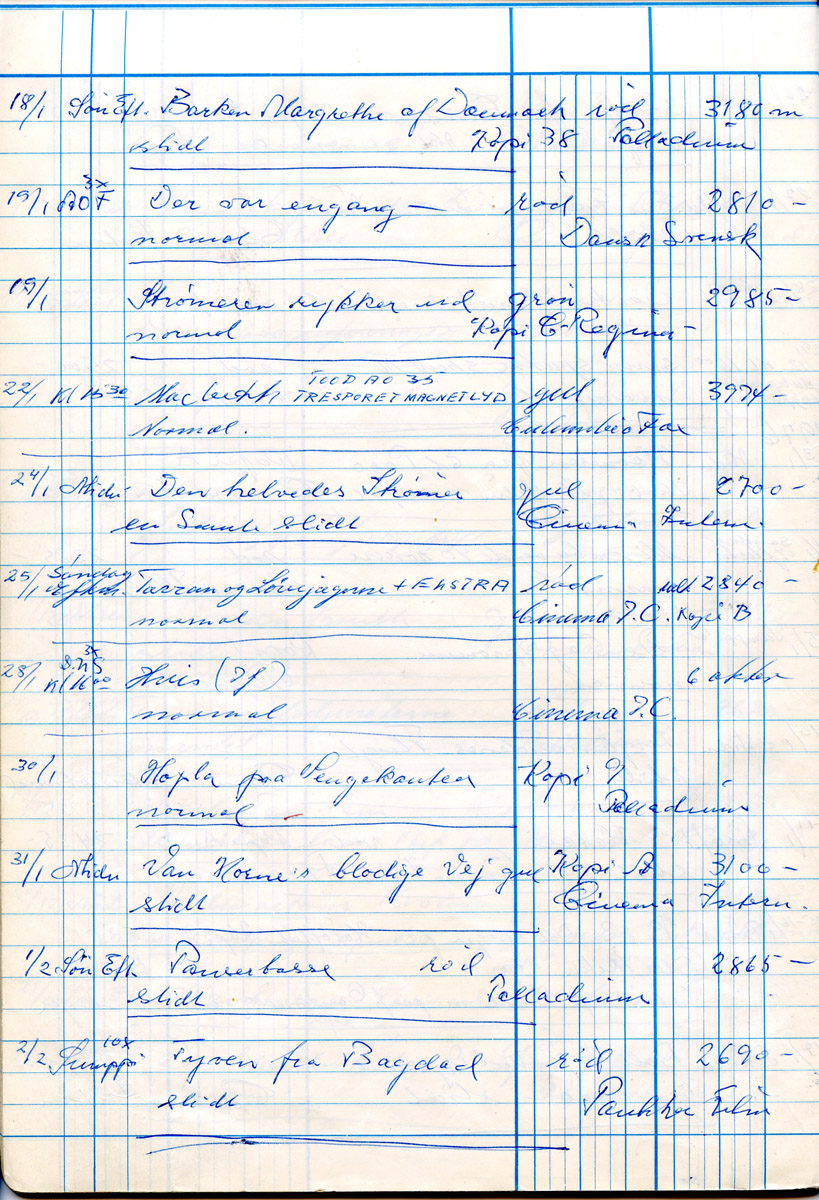 18/1 Søn Eft. Barken Margrethe af Danmark rød 3180 m
slidt Kopi 38 Palladium
19/1 AOF 3x Der var engang — rød 2810 —
normal Dansk Svensk
19/1 Strømeren rykker ud grøn 2985 —
normal Kopi C - Regina -
22/1 Kl 15 30 Macbeth TOOD AO 35 TRESPORET MAGNETLYD gul 3974 —
Normal. Columbia Fox
24/1 Midn Den helvedes Strømer gul 2700 —
en Samle slidt Cinema Intern.
25/1 Søndag Eftm. Tarzan og Løvejægerne + EKSTRA rød 2840 —
normal Cinema I.C. Kopi B
28/1 3x Kl 16 00 Hvis (If) 6 akter
normal Cinema I.C.
30/1 Hopla paa Sengekanten Kopi 9
normal Palladium
31/1 Midn Van Horne's blodige Vej gul Kopi A 3100 —
slidt Cinema Intern.
1/2 Søn Eft. Panserbasse rød 2865 —
slidt Palladium
2/2 10x Tyven fra Bagdad rød 2690 —
slidt Film